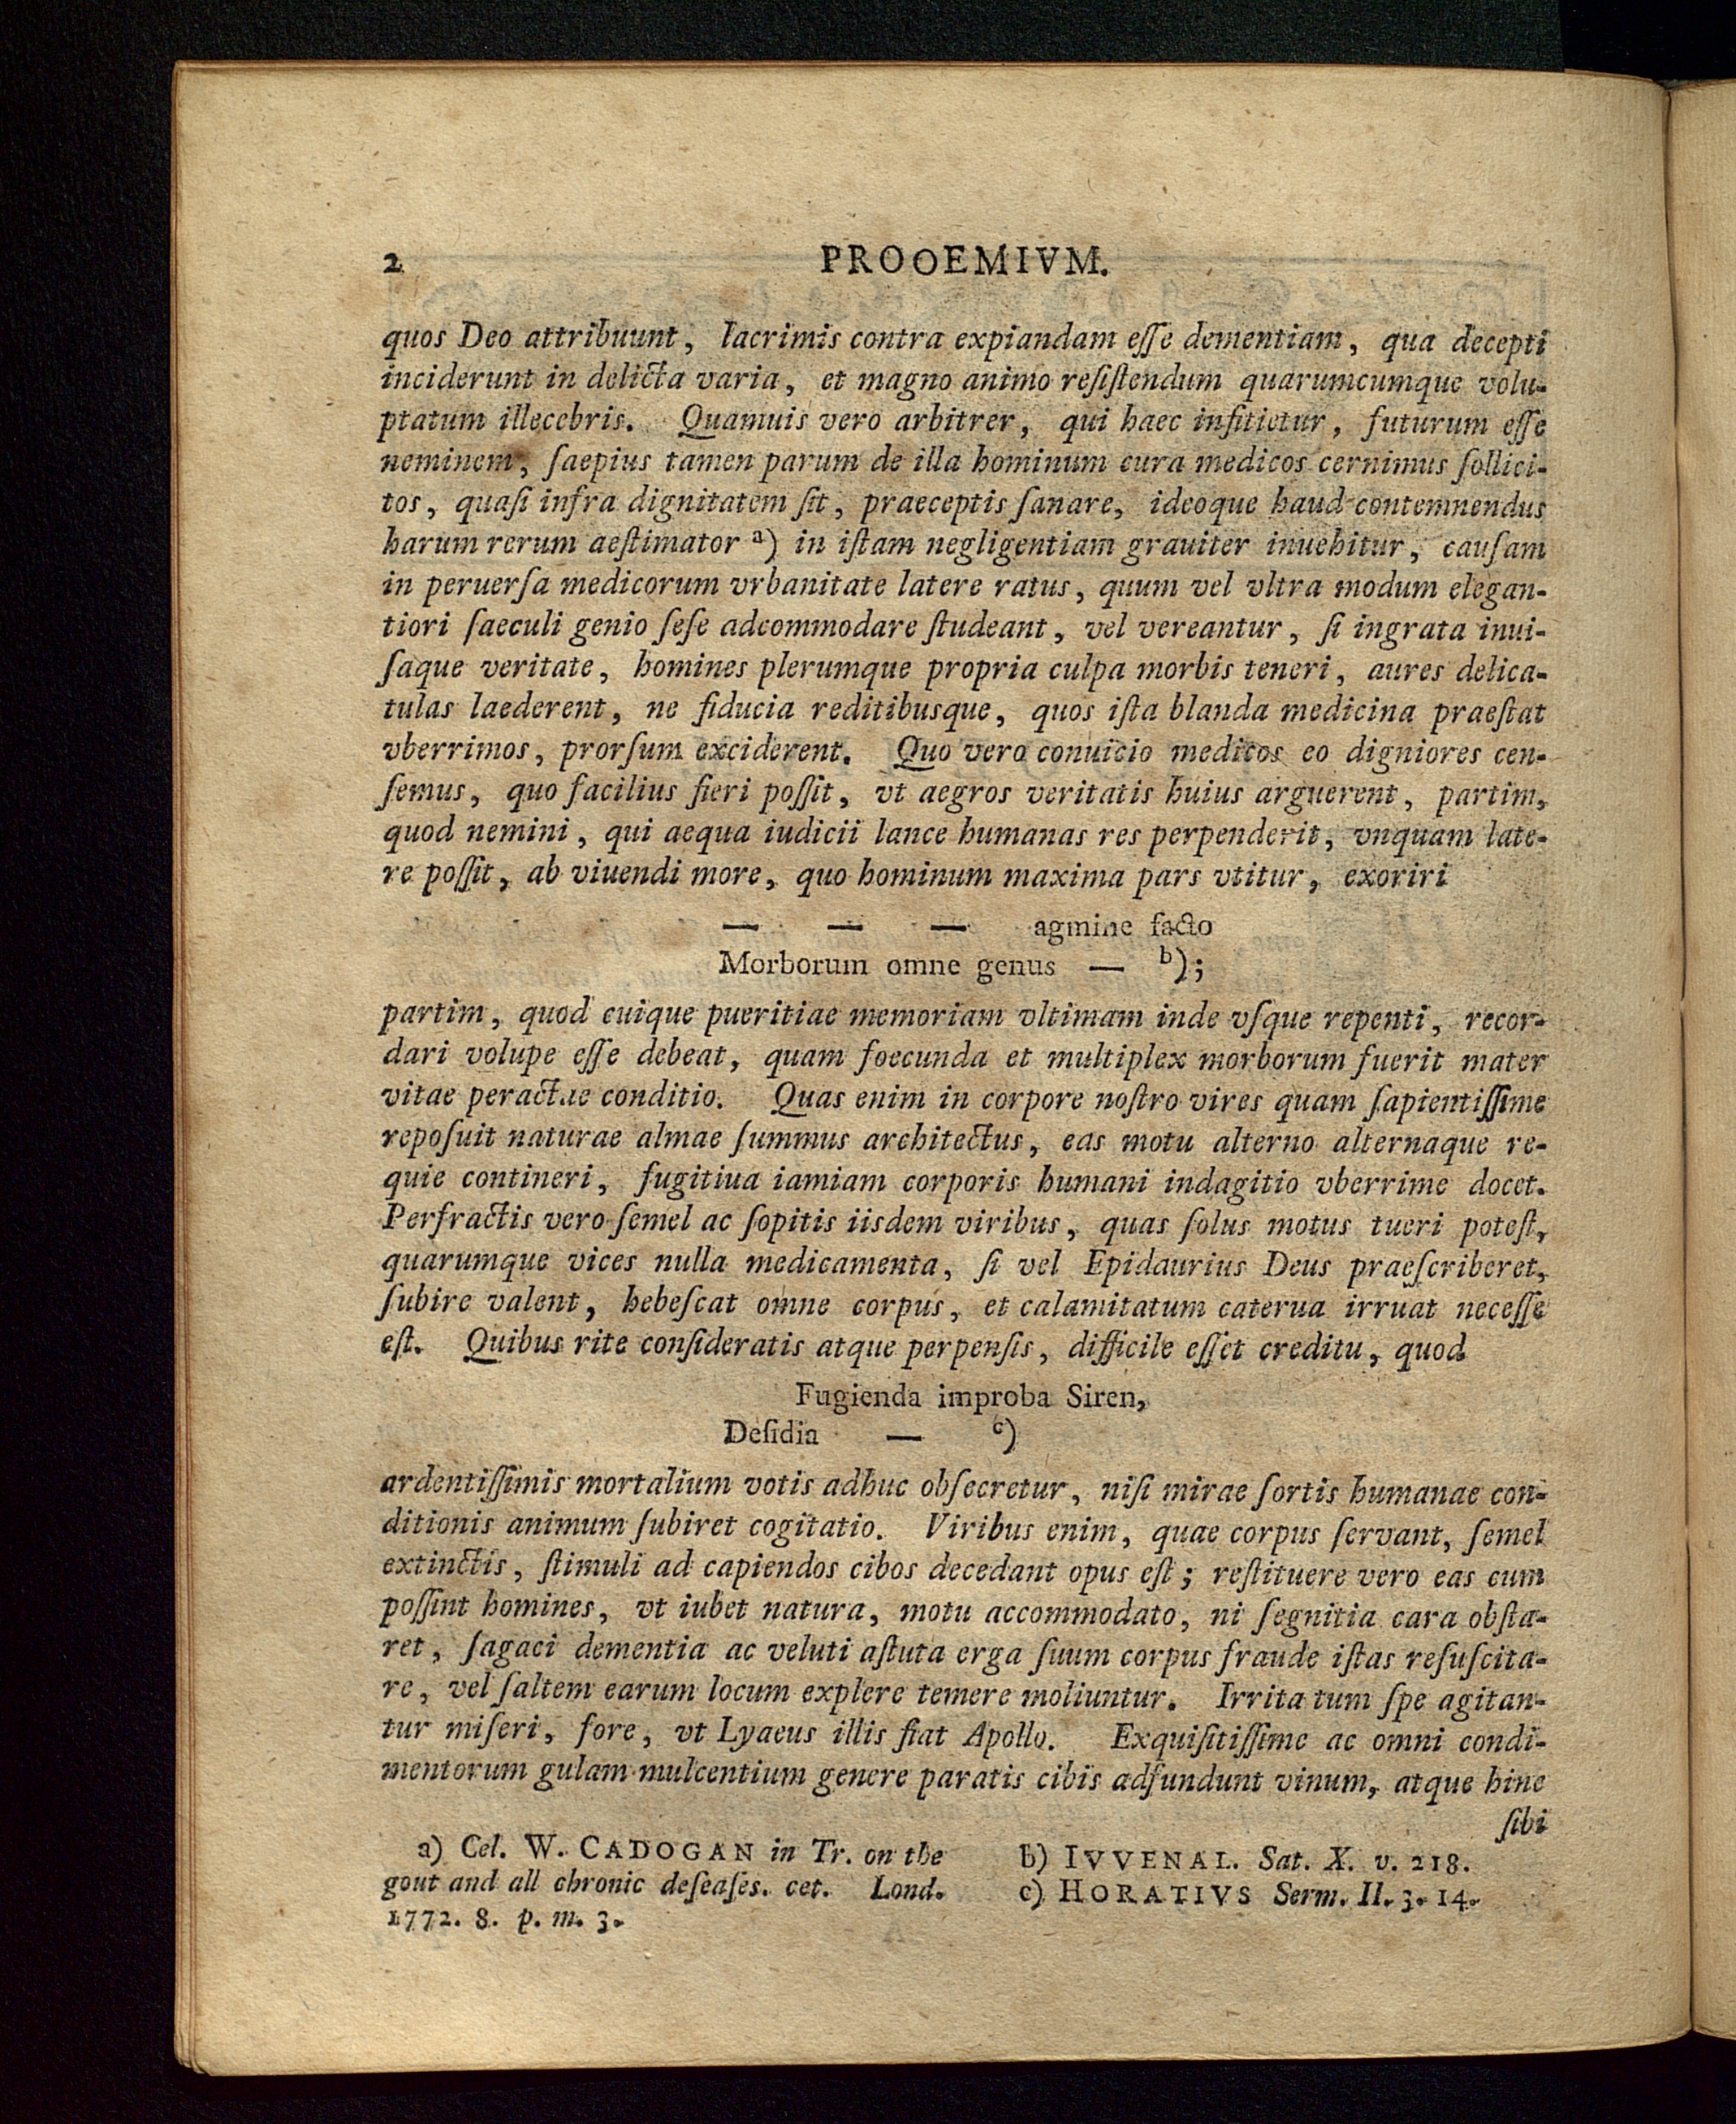 2 PROOEMIVM.
quos Deo attribuunt, lacrimis contra expiandam eſſe dementiam, qua decepti
inciderunt in delicta varia, et magno animo reſiſtendum quarumcumque volu-
ptatum illecebris. Quamuis vero arbitrer, qui haec infitietur, futurum eſſe
neminem, ſaepius tamen parum de illa hominum cura medicos cernimus ſollici-
tos, quaſi infra dignitatem ſit, praeceptis ſanare, ideoque haud contemnendus
harum rerum aeſtimator a) in iſtam negligentiam grauiter inuehitur, cauſam
in peruerſa medicorum vrbanitate latere ratus, quum vel vltra modum elegan-
tiori ſaeculi genio ſeſe adcommodare ſtudeant, vel vereantur, ſi ingrata inui-
ſaque veritate, homines plerumque propria culpa morbis teneri, aures delica-
tulas laederent, ne fiducia reditibusque, quos iſta blanda medicina praeſtat
vberrimos, prorſum exciderent. Quo vero conuicio medicos eo digniores cen-
ſemus, quo facilius fieri poſſit, vt aegros veritatis huius arguerent, partim,
quod nemini, qui aequa iudicii lance humanas res perpenderit, vnquam late-
re poſſit, ab viuendi more, quo hominum maxima pars vtitur, exoriri
— — — agmine facto
Morborum omne genus — b);
partim, quod cuique pueritiae memoriam vltimam inde vſque repenti, recor-
dari volupe eſſe debeat, quam foecunda et multiplex morborum fuerit mater
vitae peractae conditio. Quas enim in corpore noſtro vires quam ſapientiſſime
repoſuit naturae almae ſummus architectus, eas motu alterno alternaque re-
quie contineri, fugitiua iamiam corporis humani indagitio vberrime docet.
Perfractis vero ſemel ac ſopitis iisdem viribus, quas ſolus motus tueri poteſt,
quarumque vices nulla medicamenta, ſi vel Epidaurius Deus praeſcriberet,
ſubire valent, hebeſcat omne corpus, et calamitatum caterua irruat neceſſe
eſt. Quibus rite conſideratis atque perpenſis, difficile eſſet creditu, quod
Fugienda improba Siren,
Deſidia — c)
ardentiſſimis mortalium votis adhuc obſecretur, niſi mirae ſortis humanae con-
ditionis animum ſubiret cogitatio. Viribus enim, quae corpus ſervant, ſemel
extinctis, ſtimuli ad capiendos cibos decedant opus eſt; reſtituere vero eas cum
poſſint homines, vt iubet natura, motu accommodato, ni ſegnitia cara obſta-
ret, ſagaci dementia ac veluti aſtuta erga ſuum corpus fraude iſtas reſuſcita-
re, vel ſaltem earum locum explere temere moliuntur. Irrita tum ſpe agitan-
tur miſeri, fore, vt Lyaeus illis fiat Apollo. Exquiſitiſſime ac omni condi-
mentorum gulam mulcentium genere paratis cibis adfundunt vinum, atque hinc
ſibi
a) Cel. W. CADOGAN in Tr. on the
gout and all chronic deſeaſes. cet. Lond.
1772. 8. p. m. 3.
b) IVVENAL. Sat. X. v. 218.
c) HORATIVS Serm. II. 3. 14.